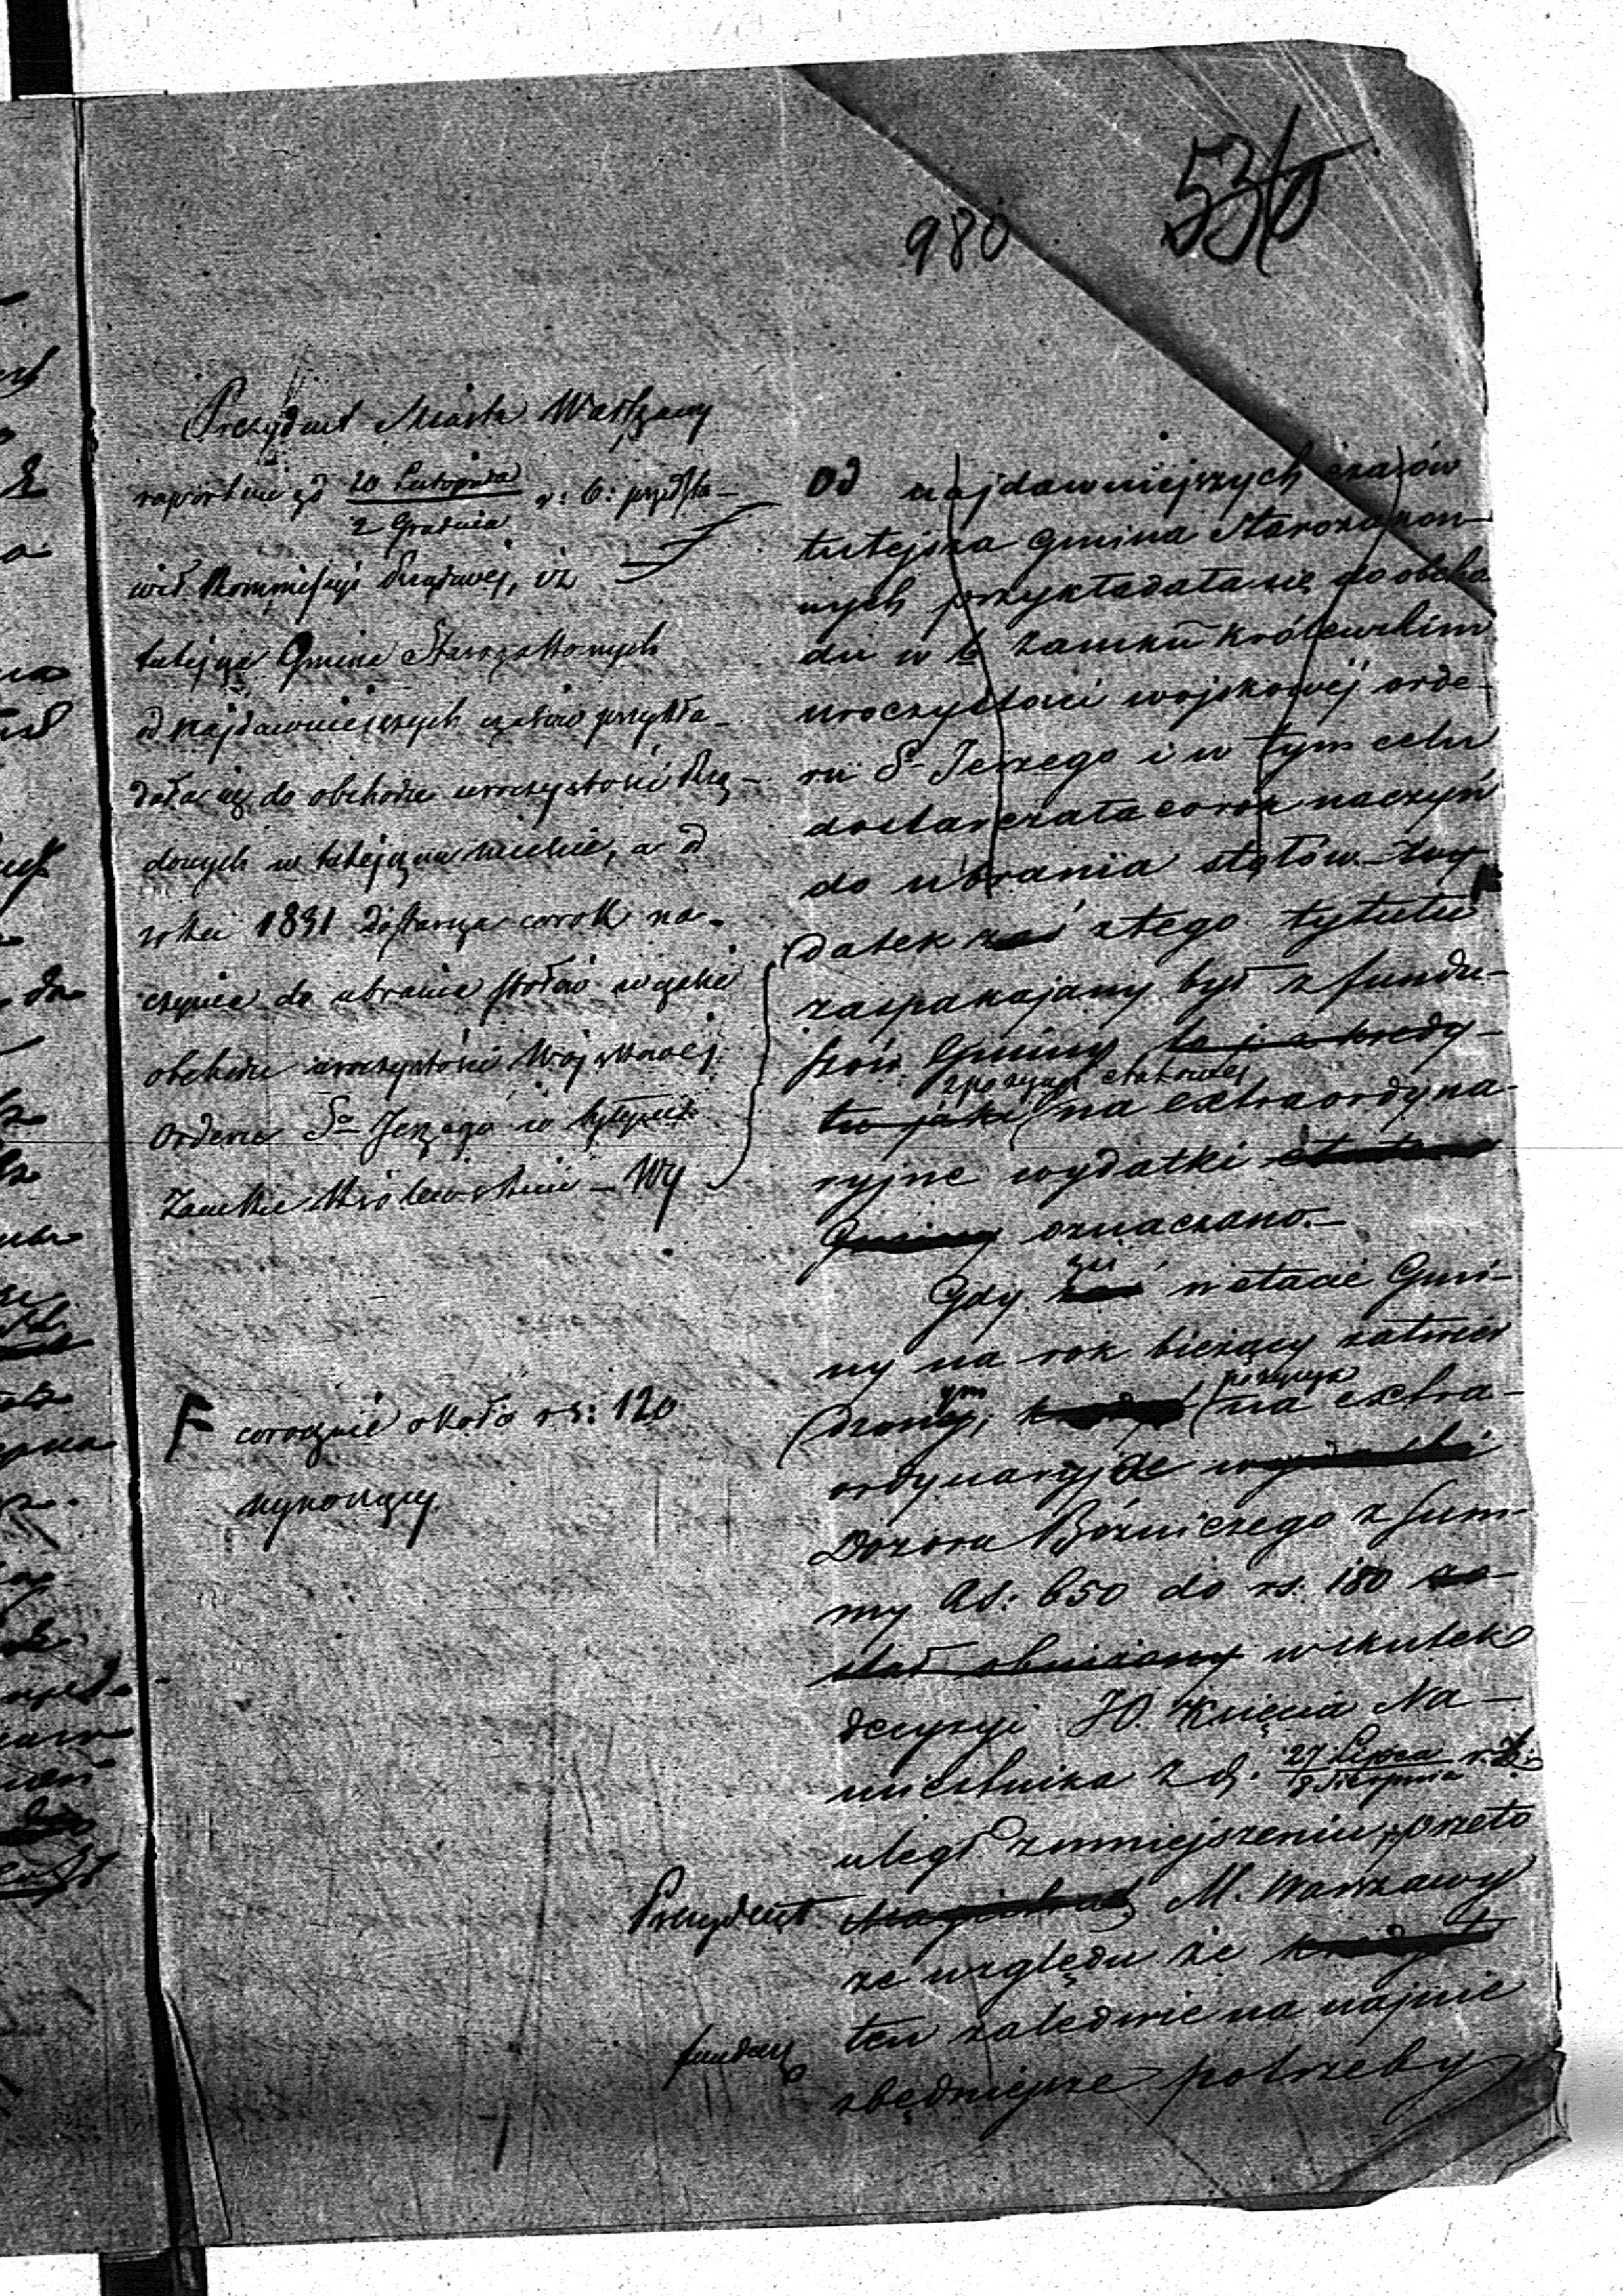 980
530
Prezydent Miasta Warszawy
raportem zd 20 Listopada / 2 Grudnia r: b: przedsta-
wił Kommissyi Rządowej, iż
tutejsza Gmina Starozakonnych
od najdawniejszych czasów przykła-
dała się do obchodu uroczystości Rzą-
dowych w tutejszem mieście, a od
roku 1831 dostarcza corok na-
czynia do ubrania stołów w czasie
obchodu uroczystości Wojskowej
Orderu Sgo Jerzego w tutejszem
Zamku Królewskim – Wy
F corocznie około rs: 120
wynoszący
Od najdawniejszych czasów
tutejsza Gmina Starozakon-
nych przykładała się do obcho
du w t. zamku królewskim
uroczystości wojskowej orde-
ru S. Jerzego i w tym celu
dostarczała corok naczyń
do ubrania stołów. Wy F
datek zaś z tego tytułu
zaspakajany był z fundu-
szów Gminy tej z kredy-
z pozycyi etatowej
tu jaki na extraordyna-
ryjne wydatki
Gminy oznaczano.–
zaś
Gdy zaś w etacie Gmi-
ny na rok bieżący zatwier
ym pozycya
dzony, kredyt na extra-
ordynaryja wydatki
Dozoru Bóżniczego z sum-
my rs: 650 do rs. 180 zo-
stał obniżony w skutek
decyzyi JO. Księcia Na-
miestnika z d. 27 Lipca / 8 Sierpnia r. b:
uległ zmniejszeniu, przeto
Prezydent Magistrat M. Warszawy
ze względu że kredyt
fundusz ten zaledwie na najnie
zbędniejsze potrzeby